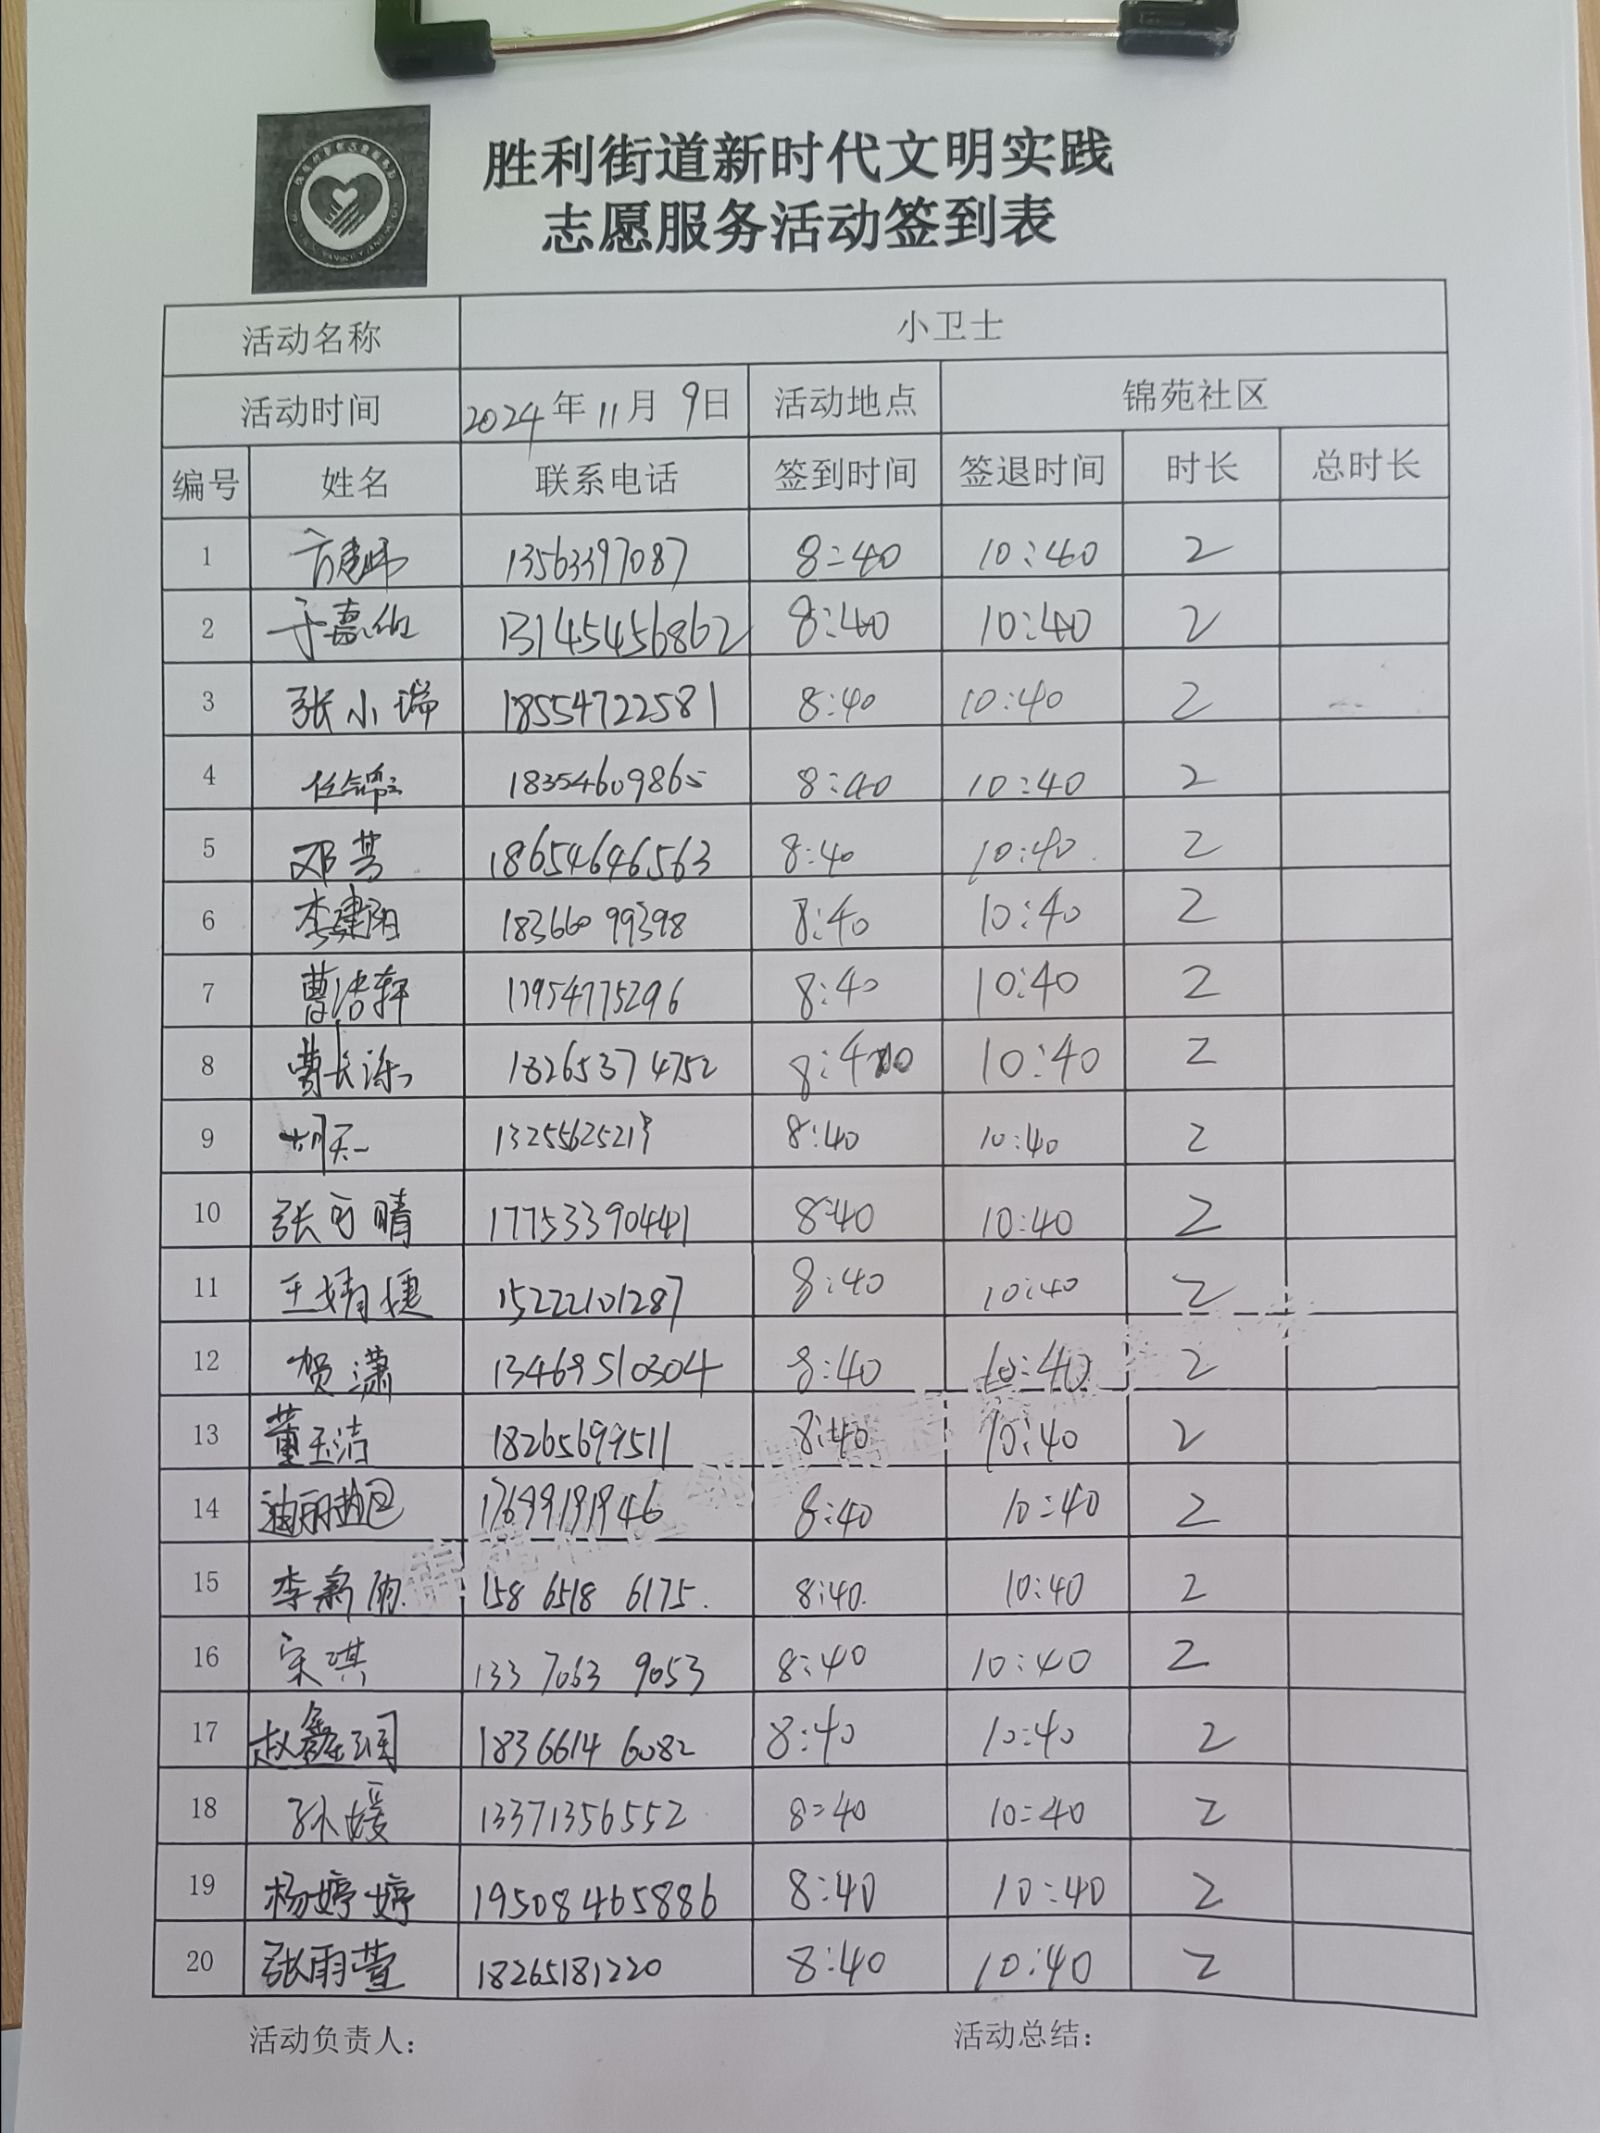 胜利街道新时代文明实践
志愿服务活动签到表
活动名称 小卫士
活动时间 2024年11月9日 活动地点 锦苑社区
编号 姓名 联系电话 签到时间 签退时间 时长 总时长
1 13563397087 8:40 10:40 2
2 于嘉 13145456862 8:40 10:40 2
3 张小瑞 18554722581 8:40 10:40 2
4 任锦 18354609865 8:40 10:40 2
5 邓芳 18654646563 8:40 10:40 2
6 李建阳 18366099398 8:40 10:40 2
7 曹浩轩 17954775296 8:40 10:40 2
8 曹长 18265374752 8:40 10:40 2
9 胡天一 8:40 10:40 2
10 张可晴 17753390441 8:40 10:40 2
11 王婧婕 15222101287 8:40 10:40 2
12 贺潇 13469510304 8:40 10:40 2
13 董玉洁 18265699511 8:40 10:40 2
14 迪丽热巴 17699191946 8:40 10:40 2
15 李新雨 158 6518 6175. 8:40. 10:40 2
16 宋琪 133 7063 9053 8:40 10:40 2
17 赵鑫润 1836614 6082 8:40 10:40 2
18 孙媛 13371356552 8:40 10:40 2
19 杨婷婷 19508465886 8:40 10:40 2
20 张雨萱 18265181220 8:40 10:40 2
活动负责人： 活动总结：